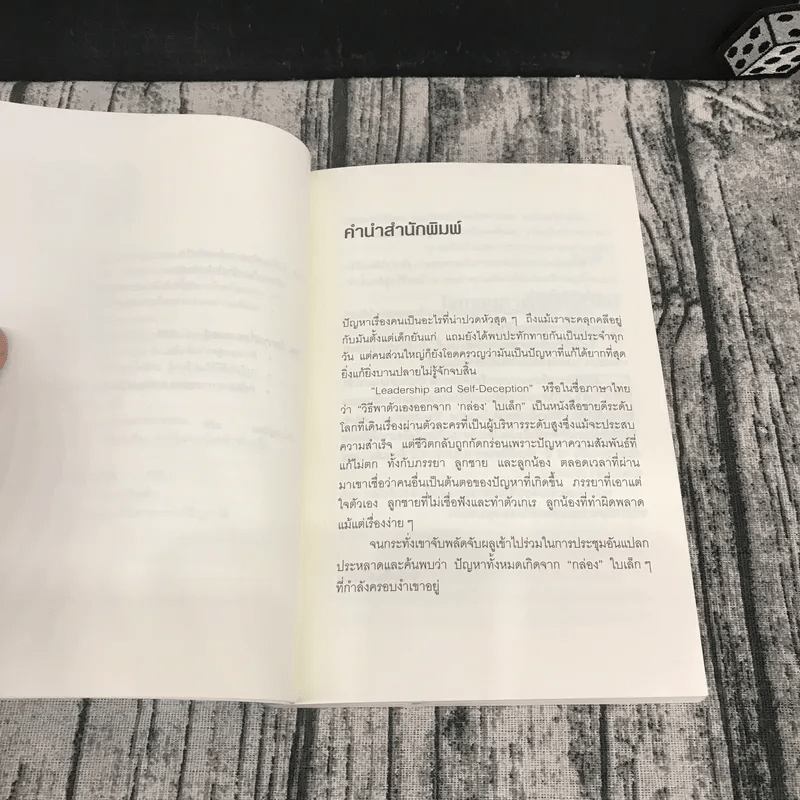 คำนำสำนักพิมพ์
ปัญหาเรื่องคนเป็นอะไรที่น่าปวดหัวสุด ๆ ถึงแม้เราจะคลุกคลีอยู่
กับมันตั้งแต่เด็กยันแก่ แถมยังได้พบปะทักทายกันเป็นประจำทุก
วัน แต่คนส่วนใหญ่ก็ยังโอดครวญว่ามันเป็นปัญหาที่แก้ได้ยากที่สุด
ยิ่งแก้ยิ่งบานปลายไม่รู้จักจบสิ้น
"Leadership and Self-Deception" หรือในชื่อภาษาไทย
ว่า "วิธีพาตัวเองออกจาก 'กล่อง' ใบเล็ก" เป็นหนังสือขายดีระดับ
โลกที่เดินเรื่องผ่านตัวละครที่เป็นผู้บริหารระดับสูงซึ่งแม้จะประสบ
ความสำเร็จ แต่ชีวิตกลับถูกกัดกร่อนเพราะปัญหาความสัมพันธ์ที่
แก้ไม่ตก ทั้งกับภรรยา ลูกชาย และลูกน้อง ตลอดเวลาที่ผ่าน
มาเขาเชื่อว่าคนอื่นเป็นต้นตอของปัญหาที่เกิดขึ้น ภรรยาที่เอาแต่
ใจตัวเอง ลูกชายที่ไม่เชื่อฟังและทำตัวเกเร ลูกน้องที่ทำผิดพลาด
แม้แต่เรื่องง่าย ๆ
จนกระทั่งเขาจับพลัดจับผลูเข้าไปร่วมในการประชุมอันแปลก
ประหลาดและค้นพบว่า ปัญหาทั้งหมดเกิดจาก "กล่อง" ใบเล็ก ๆ
ที่กำลังครอบงำเขาอยู่